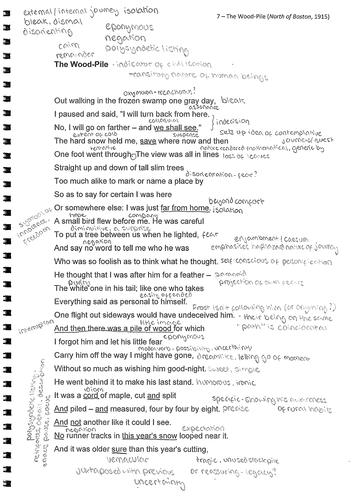 external/internal journey isolation
bleak, dismal
disorienting
eponymous
negation
calm
remainder
polysyndetic listing
7 – The Wood-Pile (North of Boston, 1915)
The Wood-Pile - indicator of civilisation
- transitory nature of human beings
Out walking in the frozen swamp one gray day, bleak
assonance
I paused and said, "I will turn back from here.
colloquial
indecision
No, I will go farther – and we shall see."
sets up idea of contemplative
journey/quest
The hard snow held me, save where now and then
One foot went through. The view was all in lines
Straight up and down of tall slim trees
disorientation - fear?
Too much alike to mark or name a place by
So as to say for certain I was here
beyond compact
Or somewhere else: I was just far from home. isolation
symbol of
innocence,
freedom
company
A small bird flew before me. He was careful
To put a tree between us when he lighted, fear
enjambment/caesura
negation
And say no word to tell me who he was
emphasises nature of journey
Who was so foolish as to think what he thought. self conscious of personification
He thought that I was after him for a feather – paranoid
purity
projection of own fears
The white one in his tail; like one who takes
easily offended
Everything said as personal to himself.
Frost isn't following him (or anything?)
One flight out sideways would have undeceived him. - their being on the same
"path" is coincidental
little image
interruption
And then there was a pile of wood for which
eponymous
I forgot him and let his little fear
possibility, uncertainty
Carry him off the way I might have gone, dreamlike, letting go of moment
Without so much as wishing him good-night. sweet, simple
He went behind it to make his last stand. humorous, ironic
idiom
It was a cord of maple, cut and split
specific - showing his awareness
of rural habits
And piled – and measured, four by four by eight. precise
And not another like it could I see.
negation
expectation
No runner tracks in this year's snow looped near it.
And it was older sure than this year's cutting,
vernacular
tragic, unused stockpile
juxtaposed with previous
or reassuring - legacy?
uncertainty
polysyndetic listing,